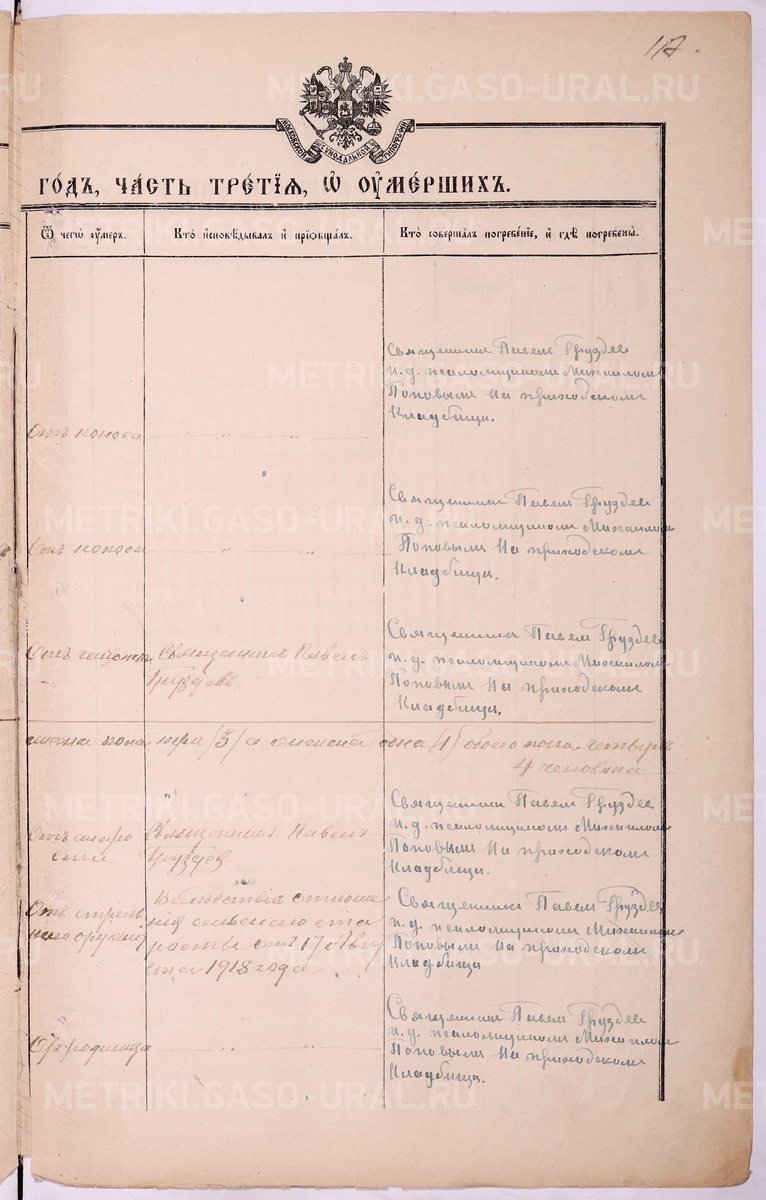 117.
МОСКОВСКОЙ СѴНОДАЛЬНОЙ ТИПОГРАФІИ
го́дъ, ча́сть тре́тїѧ, ѡ҆ ᲂу҆ме́ршихъ.
Ѿ чегѡ̀ ᲂу҆́меръ.
Кто̀ и҆сповѣ́дывалъ и҆ прїѡбща́лъ.
Кто̀ соверша́лъ погребе́нїе, и҆ гдѣ̀ погребены̀.
Отъ поноса
— „ — „ —
Священник Павел Груздев
и. д. псаломщиком Михаилом
Поповым На приходском
Кладбищи.
Отъ поноса
— „ — „ —
Священник Павел Груздев
и. д. псаломщиком Михаилом
Поповым На приходском
Кладбищи.
Отъ
Священникъ Павелъ
Груздевъ
Священник Павел Груздев
и. д. псаломщиком Михаилом
Поповым На приходском
Кладбищи.
пола /3/ а женска одна (1) обоего пола четыре
4 человека
Отъ старо
сти
Священникъ Павелъ
Груздев
Священник Павел Груздев
и. д. псаломщиком Михаилом
Поповым На приходском
Кладбищи.
Отъ
Вследствія отноше
нія сельского ста
росты отъ 17 Авгу
ста 1918 года
Священник Павел Груздев
и. д. псаломщиком Михаилом
Поповым На приходском
Кладбища
От родимца
— „ — „ —
Священник Павел Груздев
и. д. псаломщиком Михаилом
Поповым На приходском
Кладбища.
METRIKI.GASO-URAL.RU